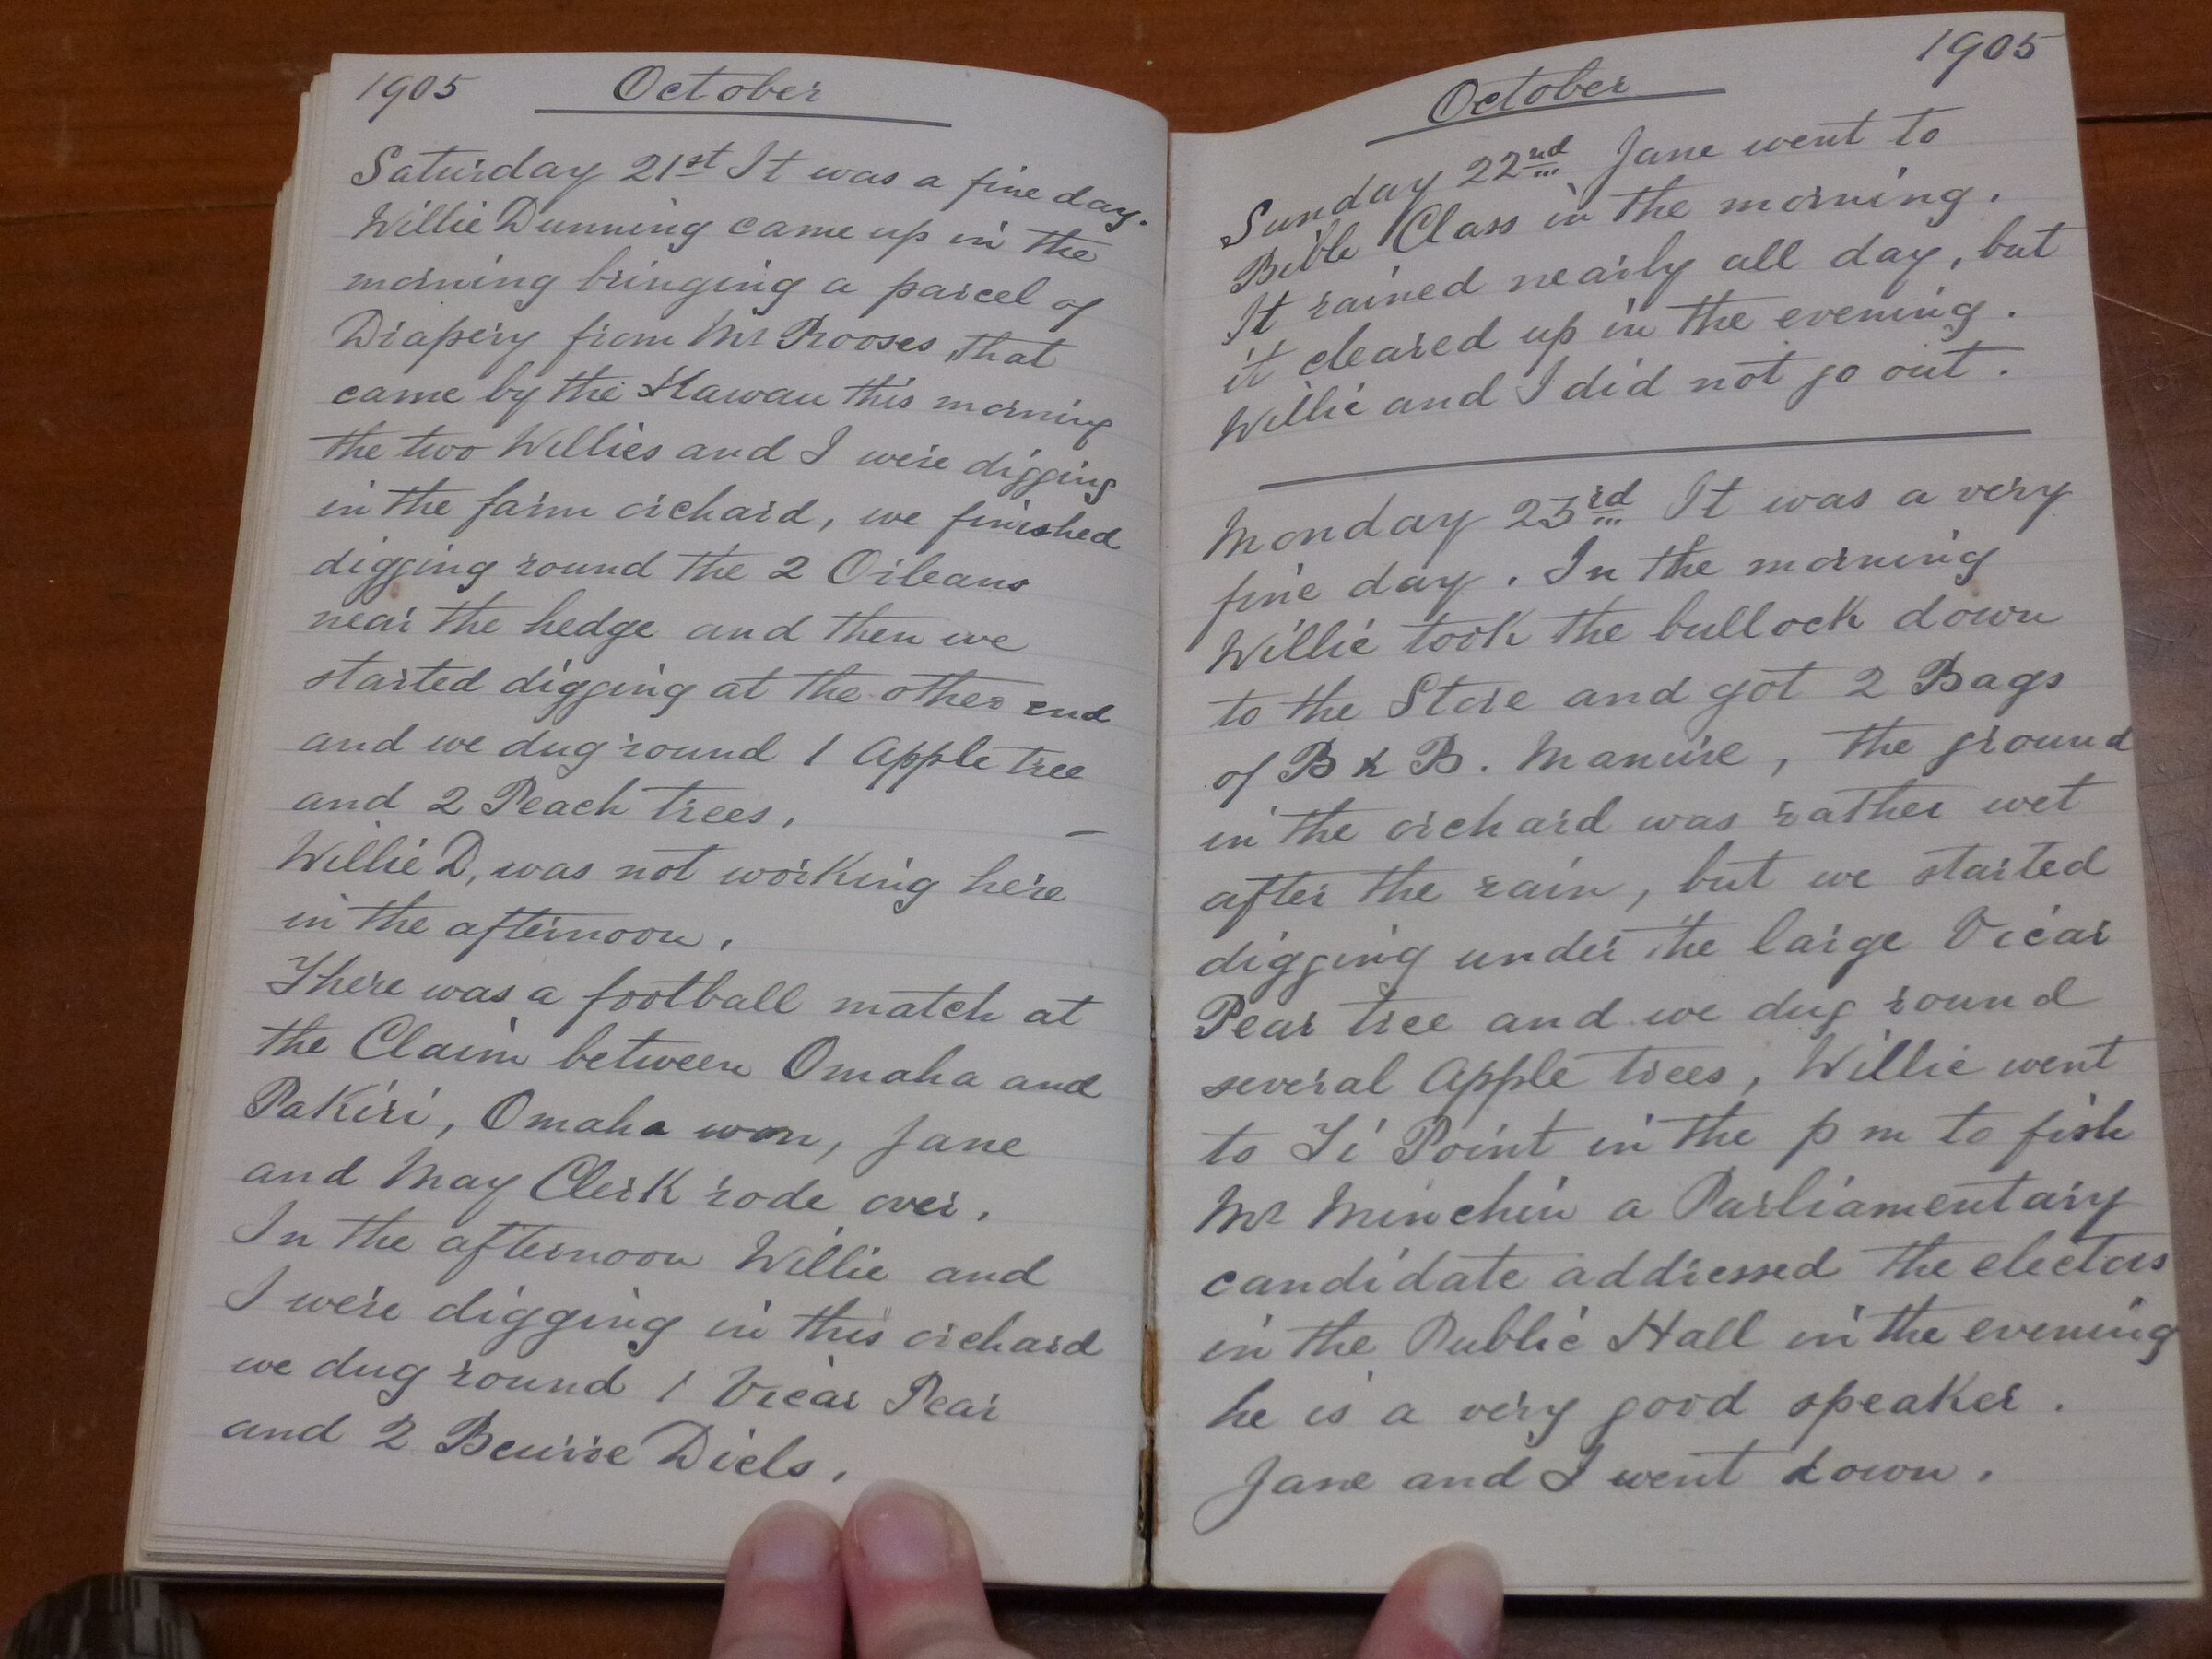 1905 October
Saturday 21st It was a fine day.
Willie Dunning came up in the
morning bringing a parcel of
Drapery from Mr Rooses that
came by the Kawau this morning
the two Willies and I were digging
in the farm orchard, we finished
digging round the 2 Orleans
near the hedge and then we
started digging at the other end
and we dug round 1 Apple tree
and 2 Peach trees. —
Willie D, was not working here
in the afternoon.
There was a football match at
the Claim between Omaha and
Pakiri, Omaha won, Jane
and May Clerk rode over.
In the afternoon Willie and
I were digging in this orchard
we dug round 1 Vicar Pear
and 2 Beurre Diels.
October 1905
Sunday 22nd Jane went to
Bible Class in the morning.
It rained nearly all day, but
it cleared up in the evening.
Willie and I did not go out.
Monday 23rd It was a very
fine day. In the morning
Willie took the bullock down
to the Store and got 2 Bags
of B & B. Manure, the ground
in the orchard was rather wet
after the rain, but we started
digging under the large Vicar
Pear tree and we dug round
several Apple trees, Willie went
to Ti Point in the p m to fish
Mr Minchin a Parliamentary
candidate addressed the electors
in the Public Hall in the evening
he is a very good speaker.
Jane and I went down.